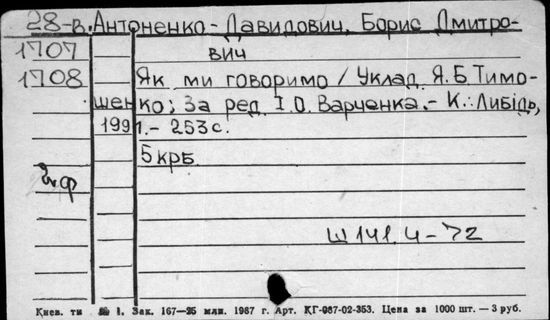 28-в. Антоненко-Давидович, Борис Дмитро-
1707 вич
1708 Як ми говоримо / Уклад. Я.Б.Тимо-
шенко; За ред. І.О.Варченка.- К.: Либідь,
1991.- 253 с.
5 крб.
Ш141.4-72
Киев. ти № 1. Зак. 167—25 млн. 1987 г. Арт. КГ-087-02-353. Цена за 1000 шт. — 3 руб.